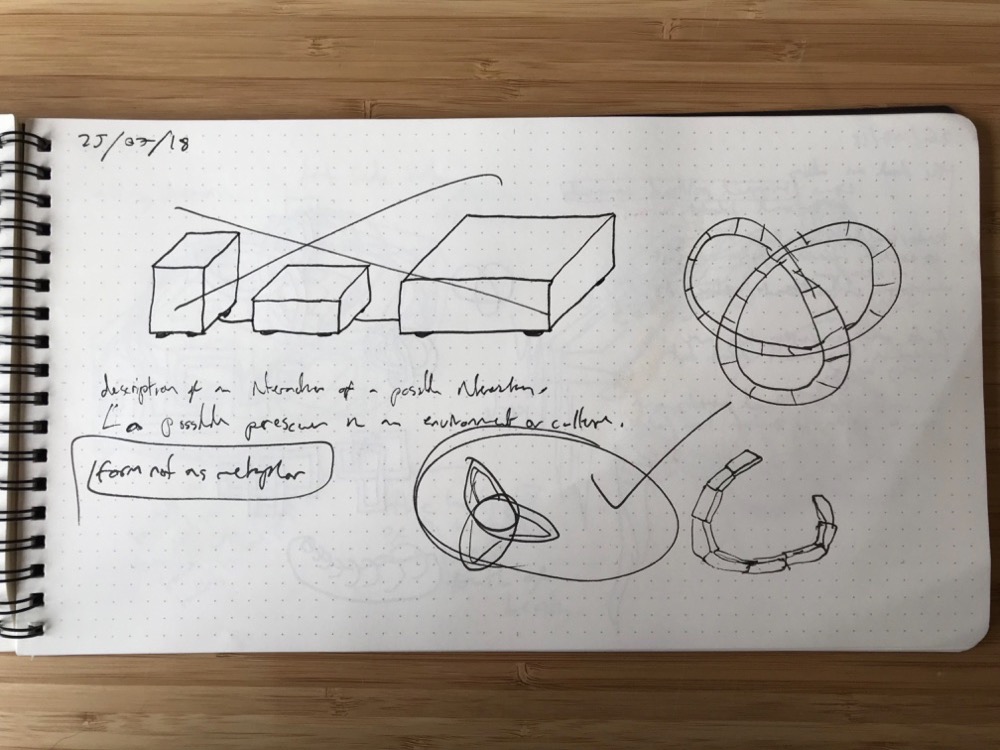 25/03/18
description of an iteration of a possible iteration.
a possible presence in an environment or culture.
form not as metaphor